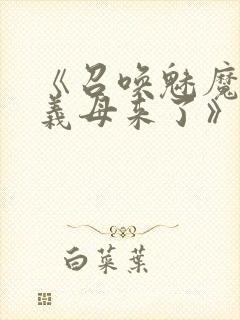 《召唤魅魔
義母来了》
白菜葉